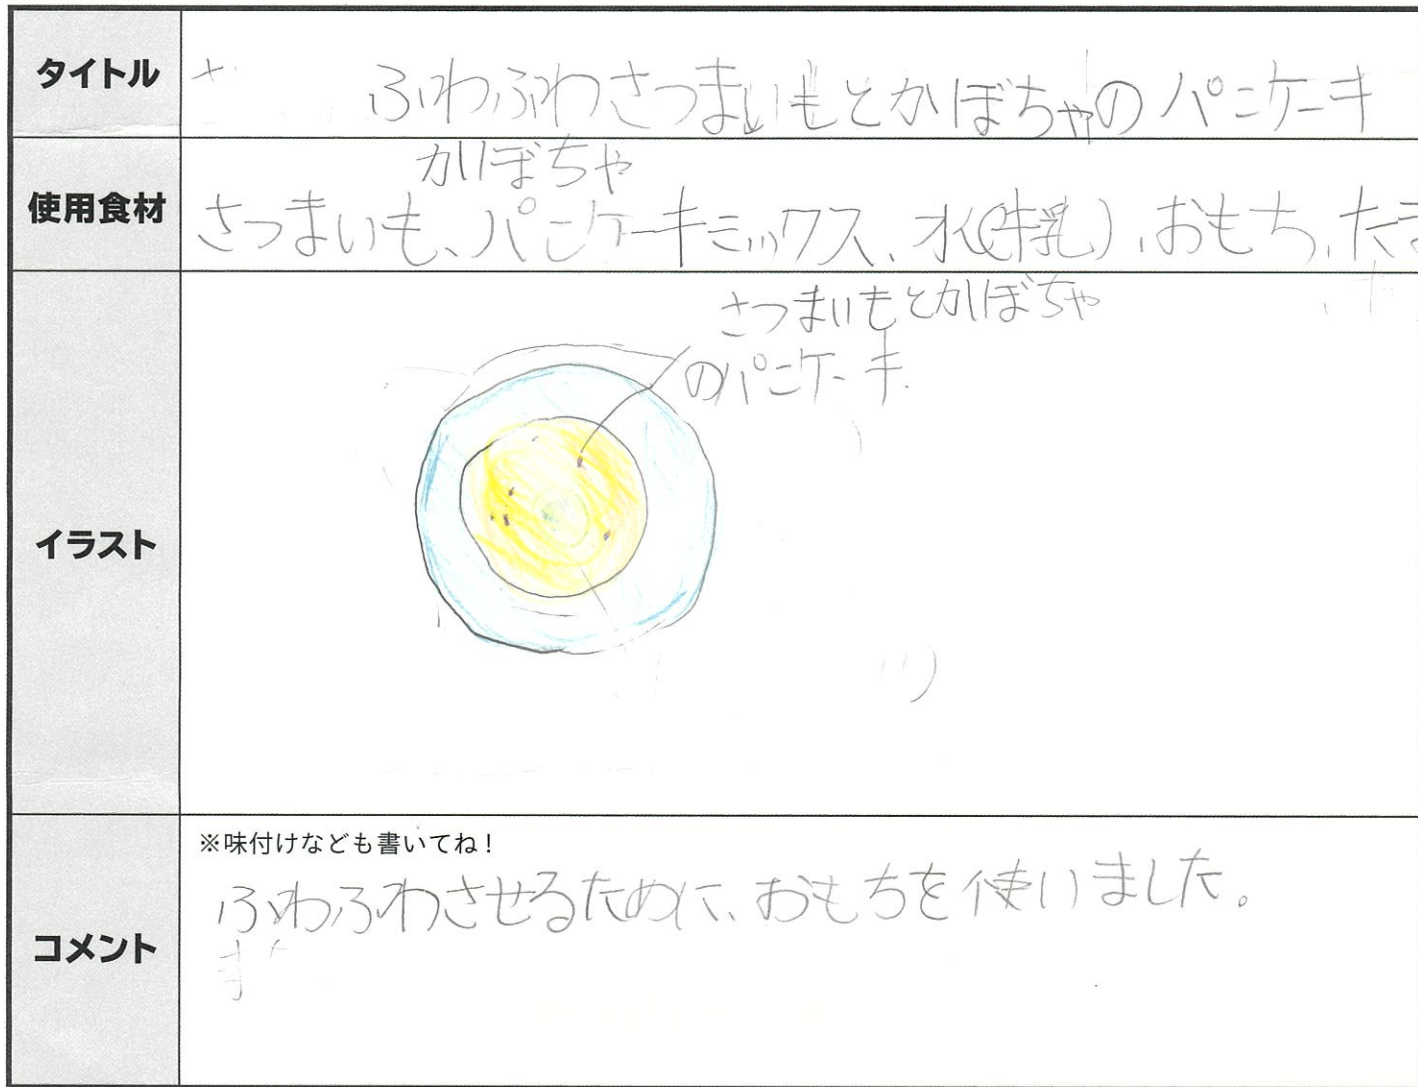 タイトル
ふわふわさつまいもとかぼちゃのパンケーキ
使用食材
かぼちゃ
さつまいも、パンケーキミックス、水(牛乳)、おもち、たま
イラスト
さつまいもとかぼちゃ
のパンケーキ
コメント
※味付けなども書いてね!
ふわふわさせるために、おもちを使いました。